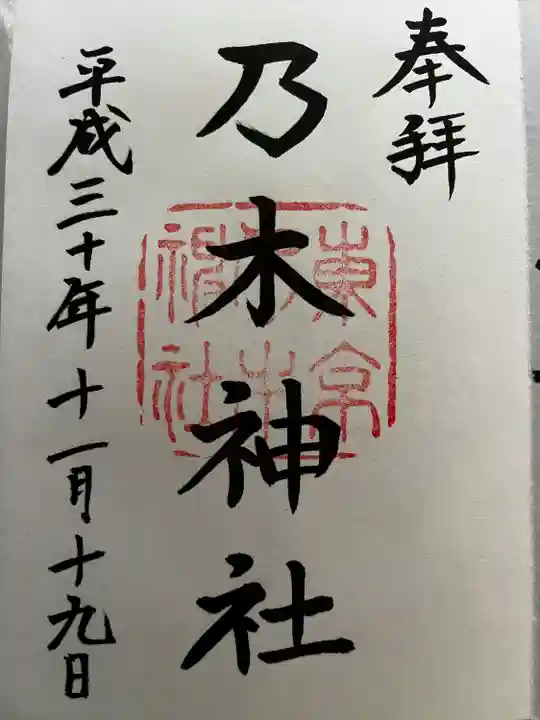 奉拝
乃木神社
平成三十年十一月十九日
東京
乃木
神社